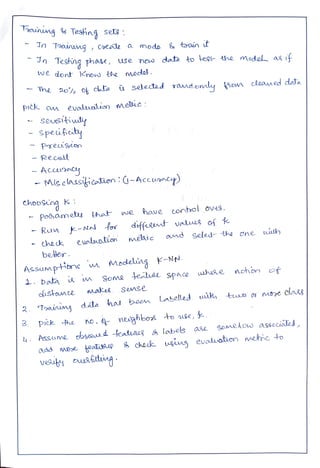 Training & Testing sets :
- In Training, create a mode & train it
- In Testing phase, use new data to test the model as if
we dont know the model.
- The 20% of data is selected randomly from cleaned data
pick an evaluation metric :
- Sensitivity
- Specificity
- Precision
- Recall
- Accuracy
- Misclassification : (1-Accuracy)
Choosing K :
- parameter that we have control over.
- Run K-NN for different values of k
- check evaluation metric and select the one with
better.
Assumptions in Modeling K-NN
1. Data is in some feature space where notion of
distance makes sense
2. Training data has been labelled with two or more class
3. pick the no. of neighbors to use, k
4. Assume observed features & labels are somehow associated,
add more features & check using evaluation metric to
verify overfitting.